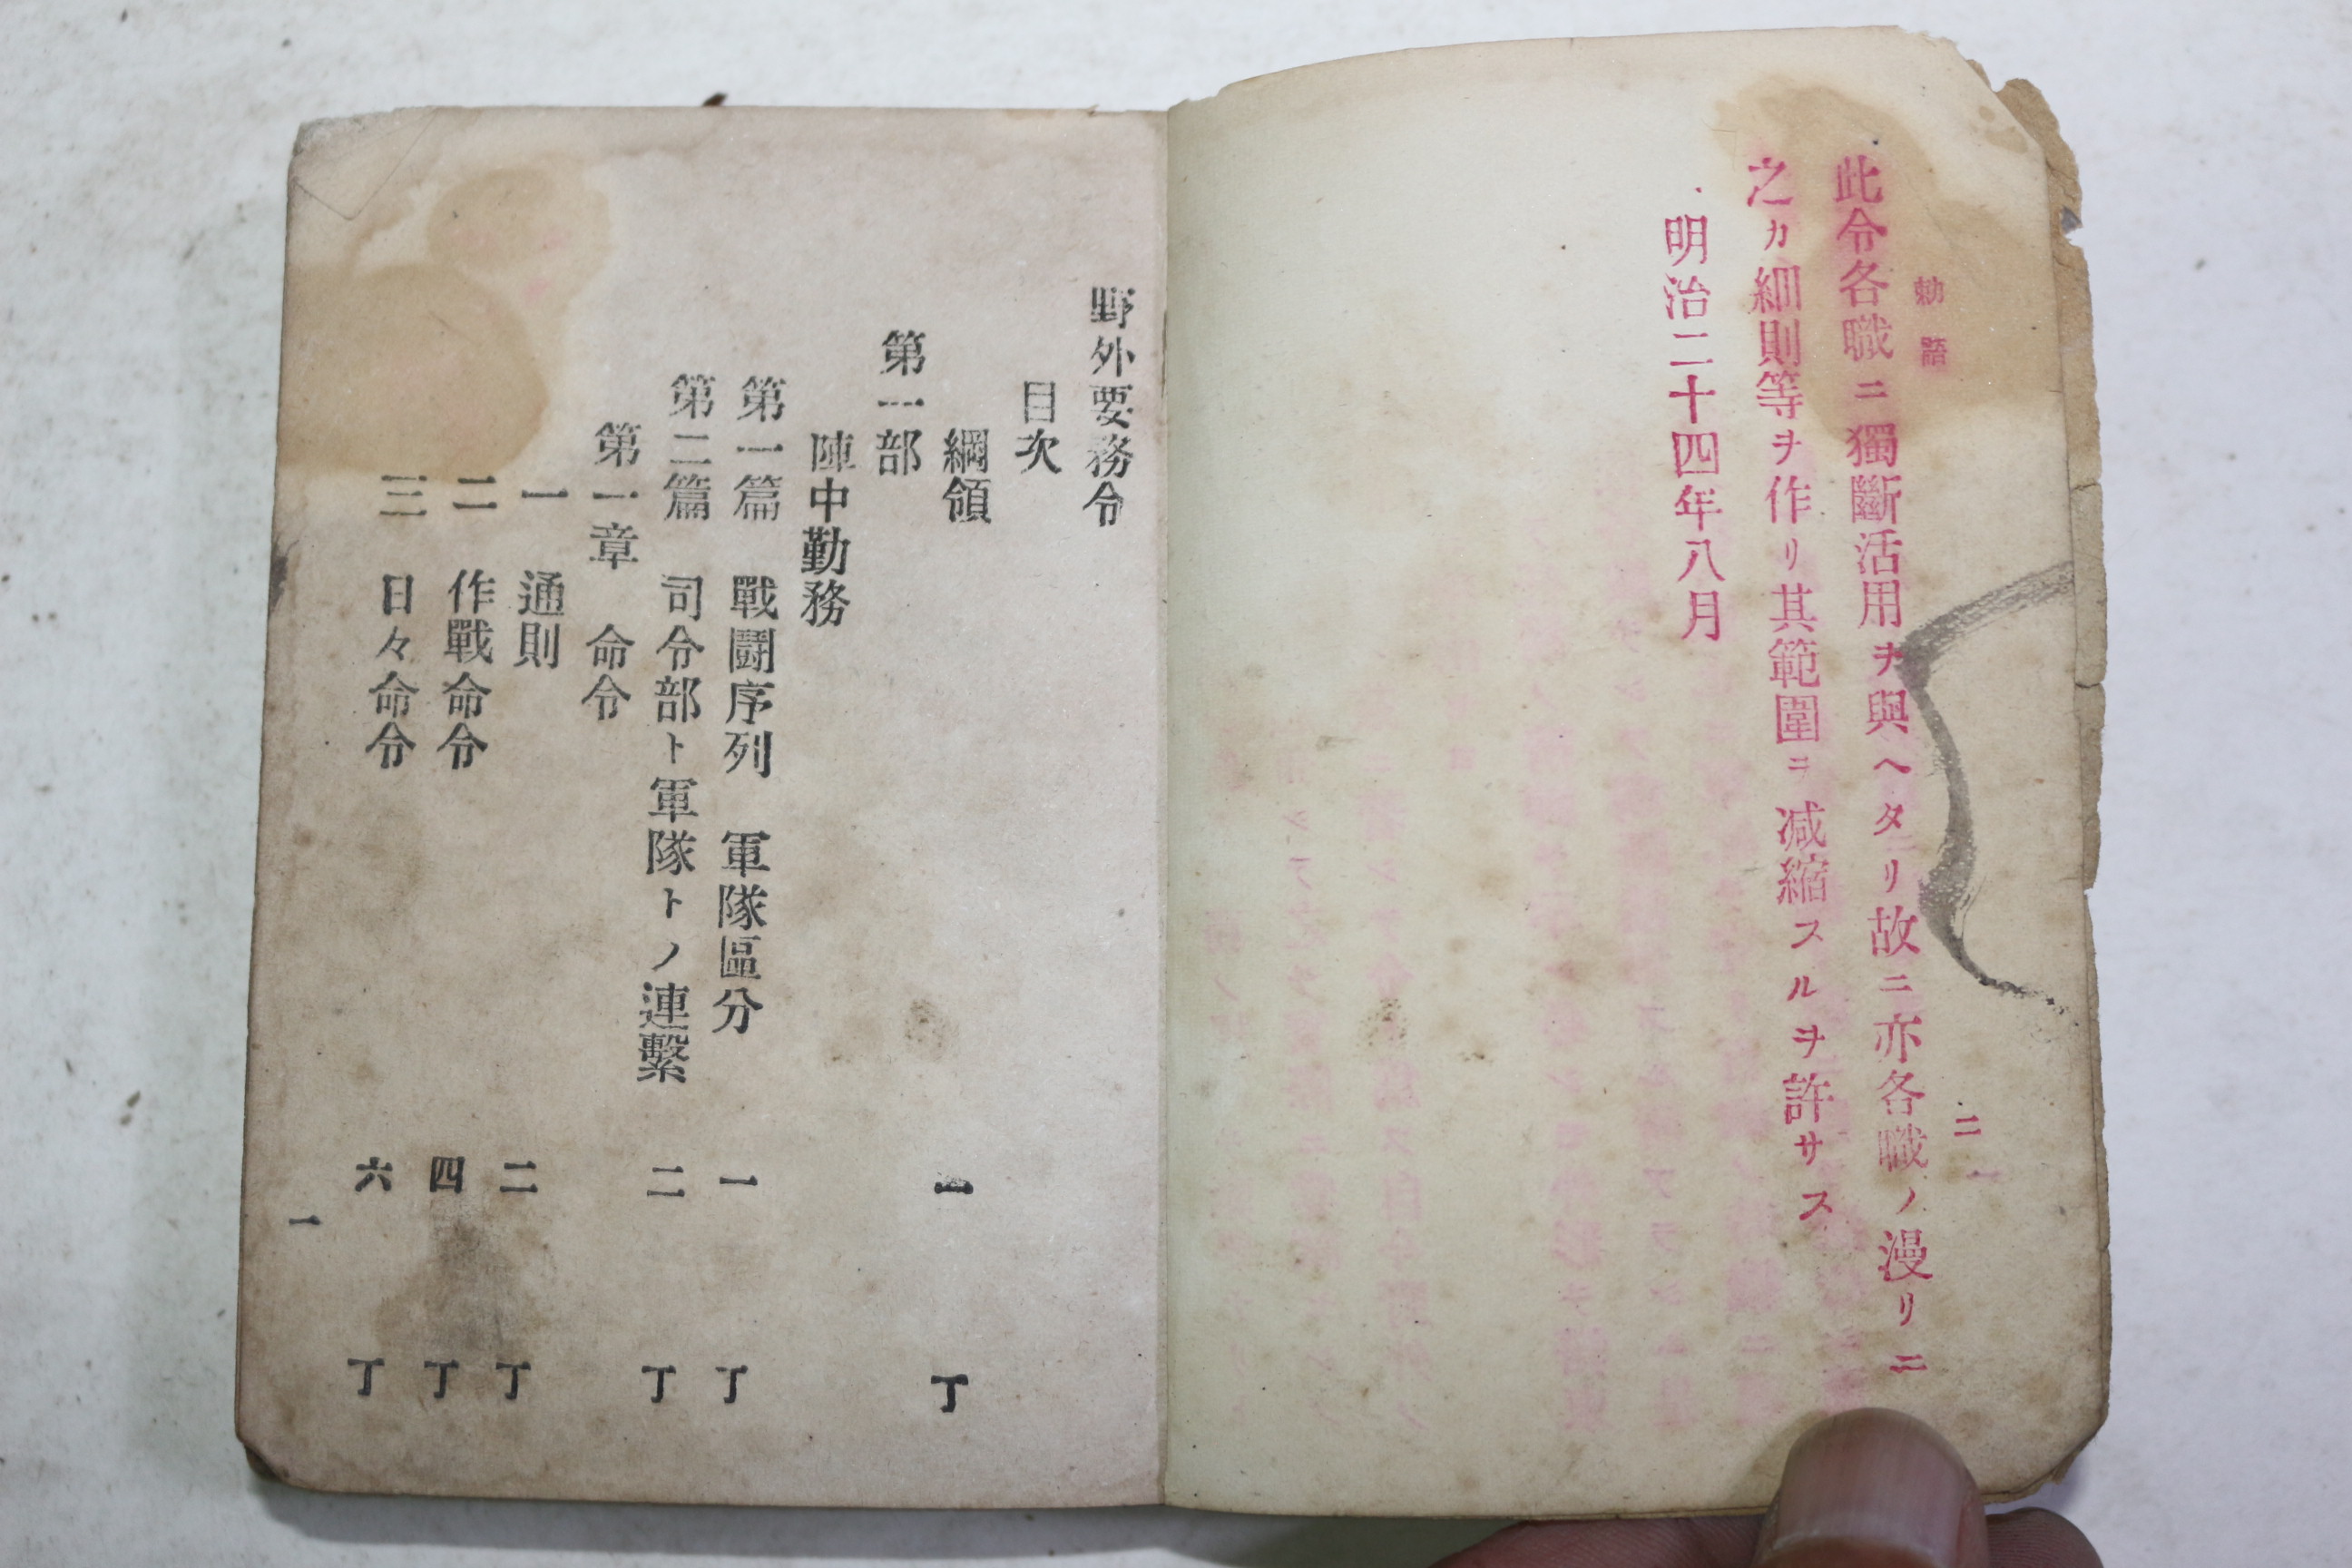 勅語
二
此令各職ニ獨斷活用ヲ與ヘタリ故ニ亦各職ノ漫リニ
之カ細則等ヲ作リ其範圍ニ减縮スルヲ許サス
明治二十四年八月
野外要務令
目次
綱領 一丁
第一部
陣中勤務
第一篇 戰鬪序列 軍隊區分 一丁
第二篇 司令部ト軍隊トノ連繫 二丁
第一章 命令
一 通則 二丁
二 作戰命令 四丁
三 日々命令 六丁
一